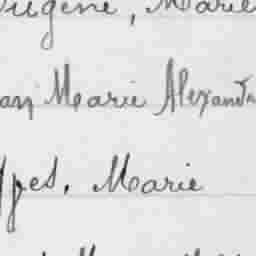 Eugène, Marie
an Marie Alexand
pes, Marie